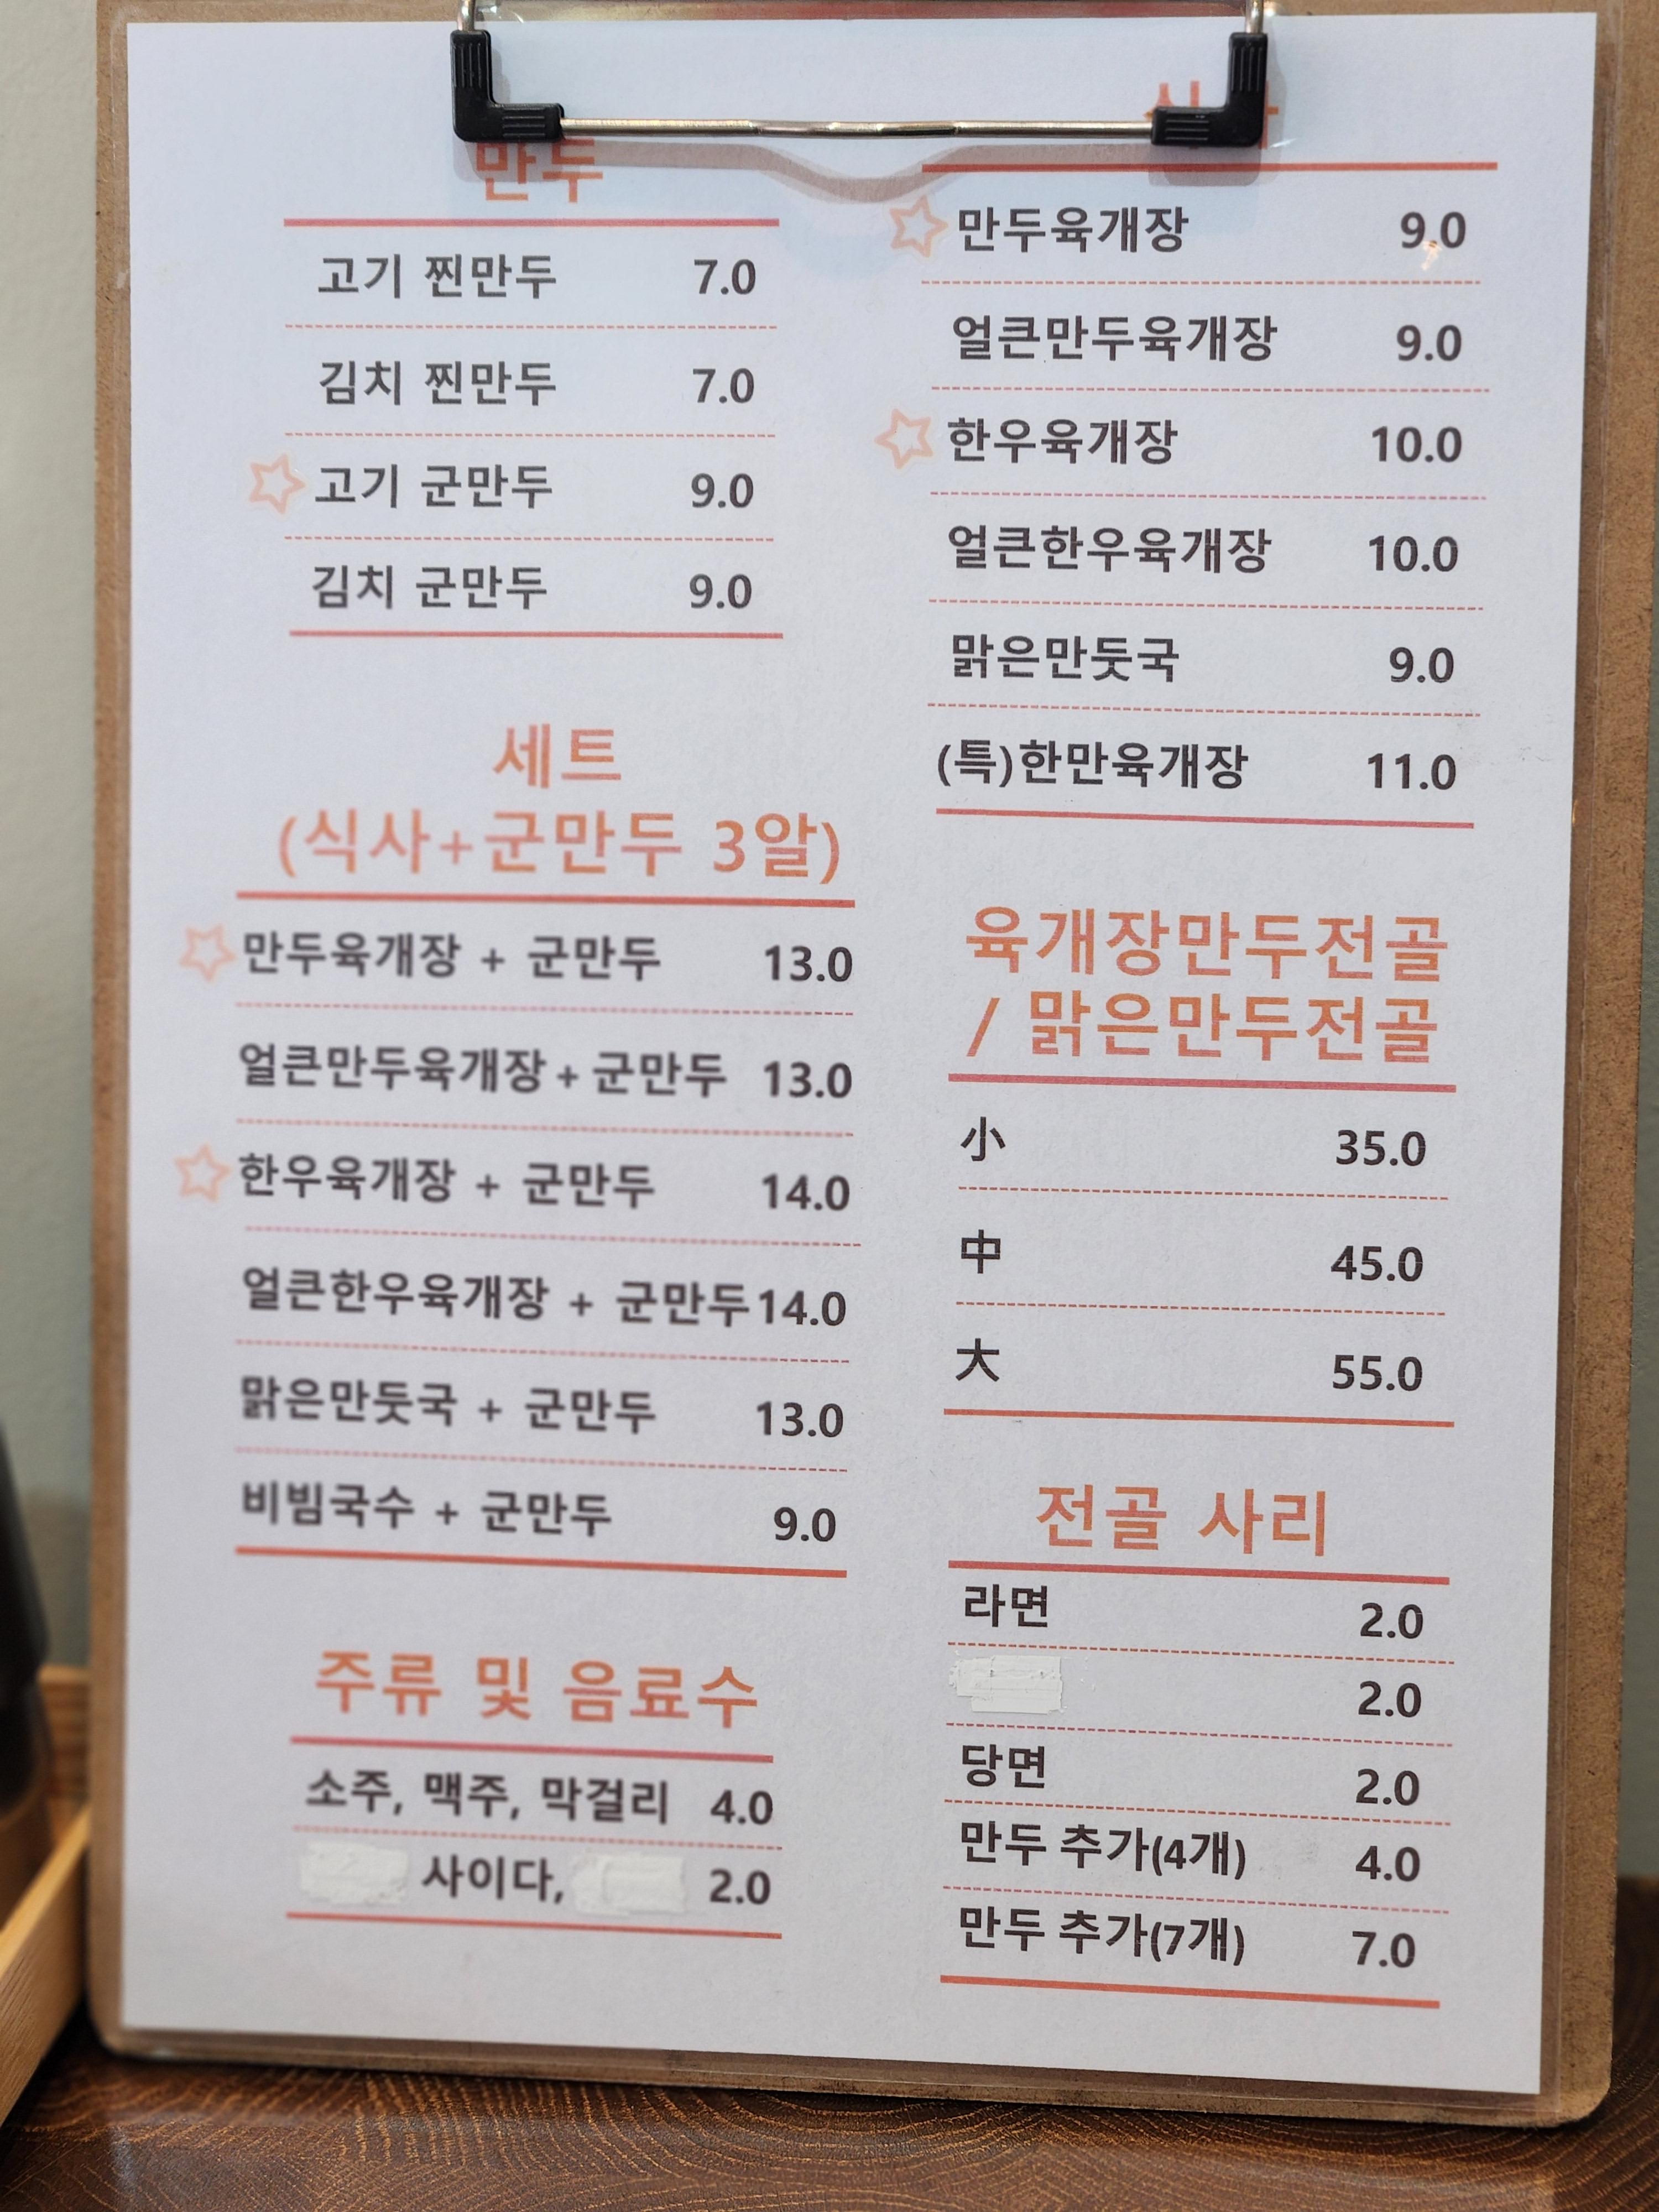 만두
고기 찐만두 7.0
김치 찐만두 7.0
고기 군만두 9.0
김치 군만두 9.0
세트
(식사+군만두 3알)
만두육개장 + 군만두 13.0
얼큰만두육개장 + 군만두 13.0
한우육개장 + 군만두 14.0
얼큰한우육개장 + 군만두 14.0
맑은만둣국 + 군만두 13.0
비빔국수 + 군만두 9.0
주류 및 음료수
소주, 맥주, 막걸리 4.0
사이다, 2.0
만두육개장 9.0
얼큰만두육개장 9.0
한우육개장 10.0
얼큰한우육개장 10.0
맑은만둣국 9.0
(특)한만육개장 11.0
육개장만두전골
/ 맑은만두전골
小 35.0
中 45.0
大 55.0
전골 사리
라면 2.0
2.0
당면 2.0
만두 추가(4개) 4.0
만두 추가(7개) 7.0